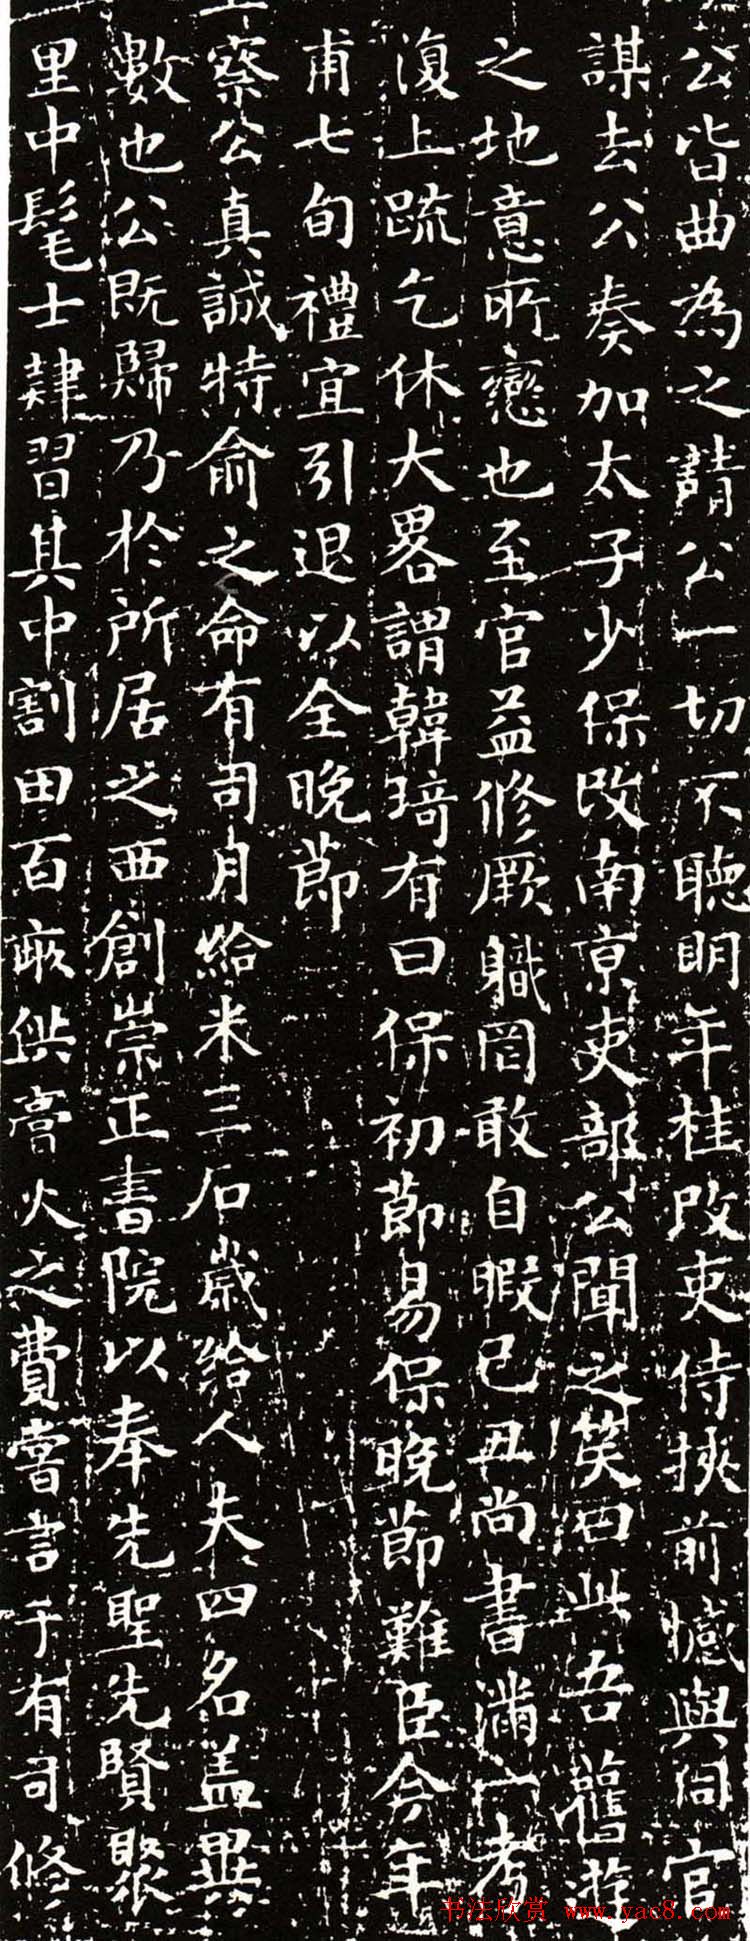 公皆曲為之請公一切不聽明年桂改吏侍挾前憾與同官
謀去公奏加太子少保改南京吏部公聞之笑曰此吾舊游
之地意所戀也至官益修厥職罔敢自暇己丑尚書滿一考
復上疏乞休大畧謂韓琦有曰保初節易保晚節難臣今年
甫七旬禮宜引退以全晚節
上察公真誠特俞之命有司月給米三石歲給人夫四名盖異
數也公既歸乃於所居之西創崇正書院以奉先聖先賢聚
里中髦士肄習其中割田百畝供膏火之費嘗言于有司修
书法欣赏 www.yac8.com